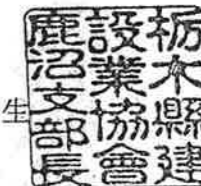 栃木縣建
設業協會
鹿沼支部長
生